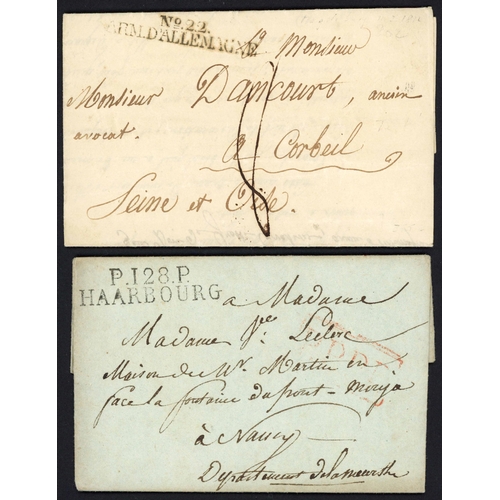 No. 22.
ARM. D'ALLEMAGNE
à Monsieur
Monsieur Dancourt, ancien
avocat.
a Corbeil
Seine et Oise.
P.128.P.
HAARBOURG
a Madame
Madame Leclerc
Maison de Mr. Martin en
face la fontaine du pont-
à Nancy
Departement de la meurthe